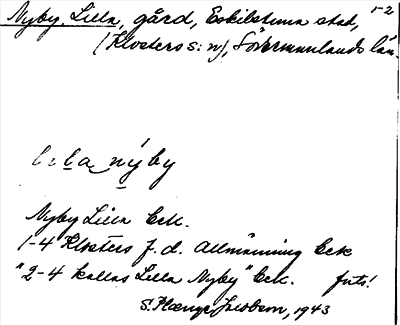 Nyby, Lilla, gård, Eskilstuna stad, 1-2
(Klosters s:n), Södermanlands län.
lilla nýby
Nyby Lilla Eck.
1-4 Klosters f. d. Allmänning Eck
"2-4 kallas Lilla Nyby" Eck. juts!
S. Plænge Jacobson, 1943